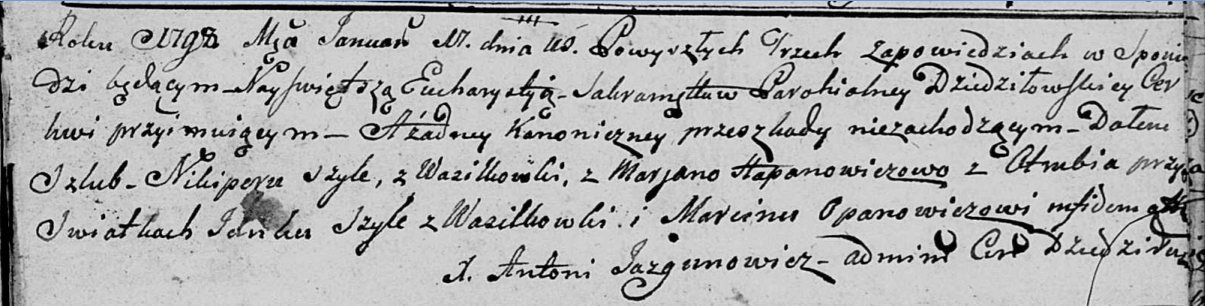 Roku 1798 Mca Januari 17. dnia v.s. Powyszłych Trzech zapowiedziach w Spowie
dzi będącym Nayświętszą Eucharystyją Sakramętu w Parohialney Dziedziłowskiey Cer
kwi przyimuiącym A żadney Kanoniczney przeszkady niezachodzącym Dałem
Szlub Nikiperu Szyle, z Wasilkowki, z Marjano Hapanowiczowo z Otrubia przy
Swiatkach Janku Szyle z Wasilkowki i Marcinu Opanowiczowi infidem
X. Antoni Jazgunowicz admini Cer Dziedzi